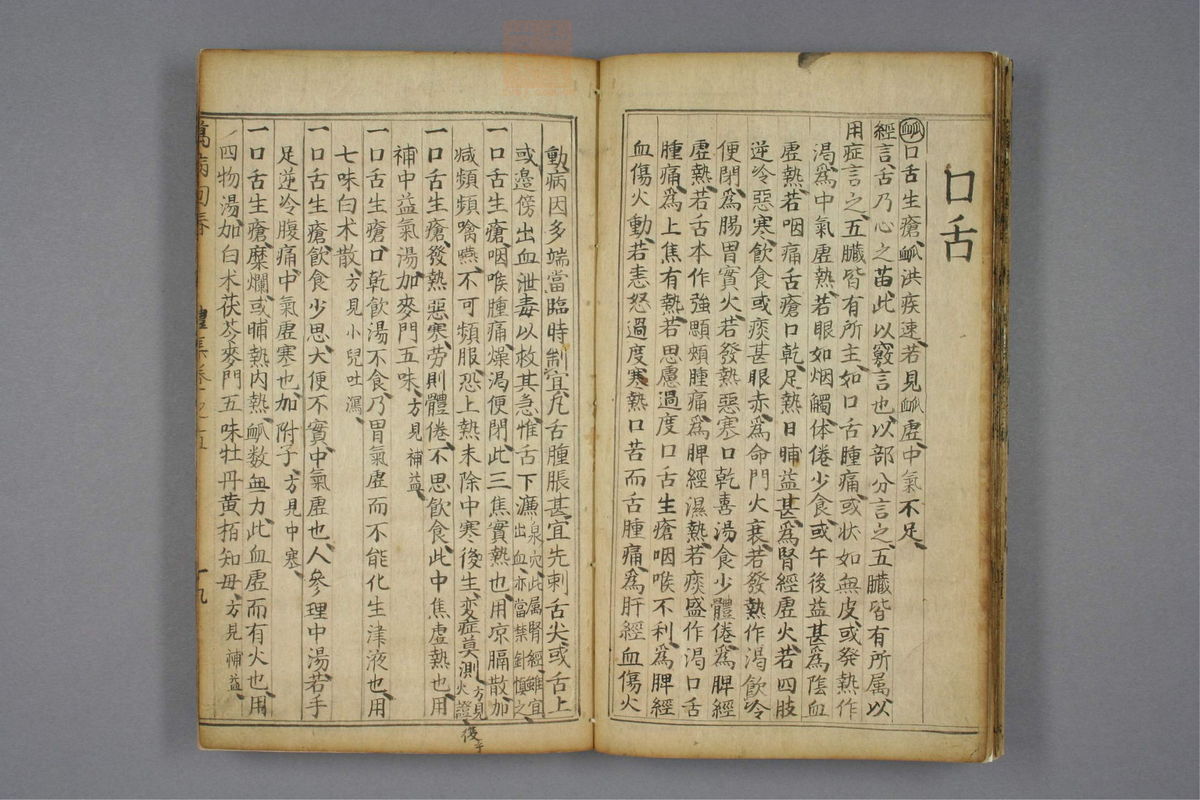 口舌
脈口舌生瘡脈洪疾速若見脈虛中氣不足
經言舌乃心之苗此以竅言也以部分言之五臟皆有所属以
用症言之五臟皆有所主如口舌腫痛或状如無皮或発熱作
渴為中氣虛熱若眼如烟觸体倦少食或午後益甚為陰血
虛熱若咽痛舌瘡口乾足熱日晡益甚為腎經虛火若四肢
逆冷惡寒飲食或痰甚眼赤為命門火衰若發熱作渴飲冷
便閉為腸胃實火若發熱惡寒口乾喜湯食少體倦為脾經
虛熱若舌本作強顋頰腫痛為脾經濕熱若痰盛作渴口舌
腫痛為上焦有熱若思慮過度口舌生瘡咽喉不利為脾經
血傷火動若恚怒過度寒熱口苦而舌腫痛為肝經血傷火
動病因多端當臨時制宜凡舌腫脹甚宜先刺舌尖或舌上
或邉傍出血泄毒以救其急惟舌下濂泉穴此属腎經雖宜出血亦當禁針慎之
一口舌生瘡咽喉腫痛燥渴便閉此三焦實熱也用凉膈散加
减頻頻噙嚥不可頻服恐上熱未除中寒後生変症莫測方見火證
復子
一口舌生瘡發熱惡寒労則體倦不思飲食此中焦虛熱也用
補中益氣湯加麥門五味方見補益
一口舌生瘡口乾飲湯不食乃胃氣虛而不能化生津液也用
七味白术散方見小兒吐瀉
一口舌生瘡飲食少思大便不實中氣虛也人參理中湯若手
足逆冷腹痛中氣虛寒也加附子方見中寒
一口舌生瘡糜爛或晡熱内熱脈数無力此血虛而有火也用
四物湯加白术茯苓麥門五味牡丹黄栢知母方見補益
萬病回春 禮集卷之五 十九